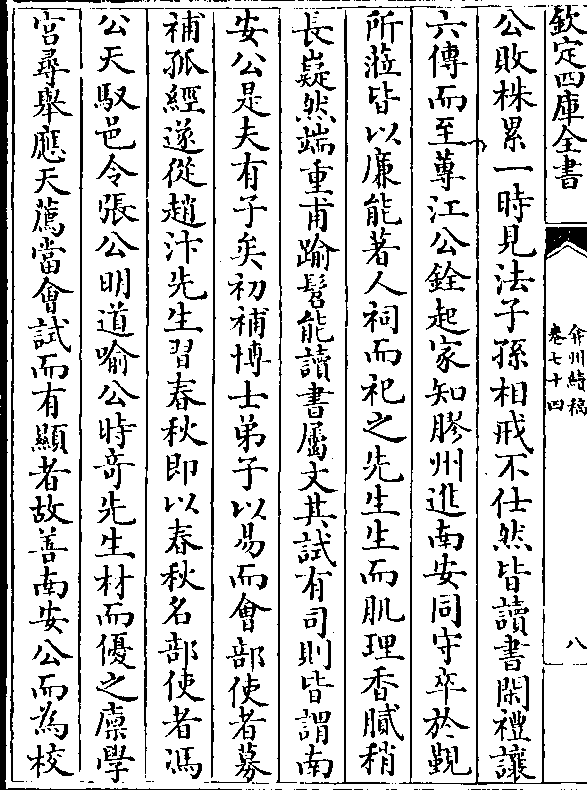 欽定四庫全書
弇州續稿
卷七十四
八
公敗株累一時見法子孫相戒不仕然皆讀書閑禮讓
六傳而至蓴江公銓起家知膠州進南安同守卒於覲
所蒞皆以廉能著人祠而祀之先生生而肌理香膩稍
長嶷然端重甫踰髫能讀書屬文其試有司則皆謂南
安公是夫有子矣初補博士弟子以易而會部使者募
補孤經遂從趙汴先生習春秋即以春秋名部使者馮
公天馭邑令張公明道喻公時奇先生材而優之廩學
宮尋舉應天薦當會試而有顯者故善南安公而為校